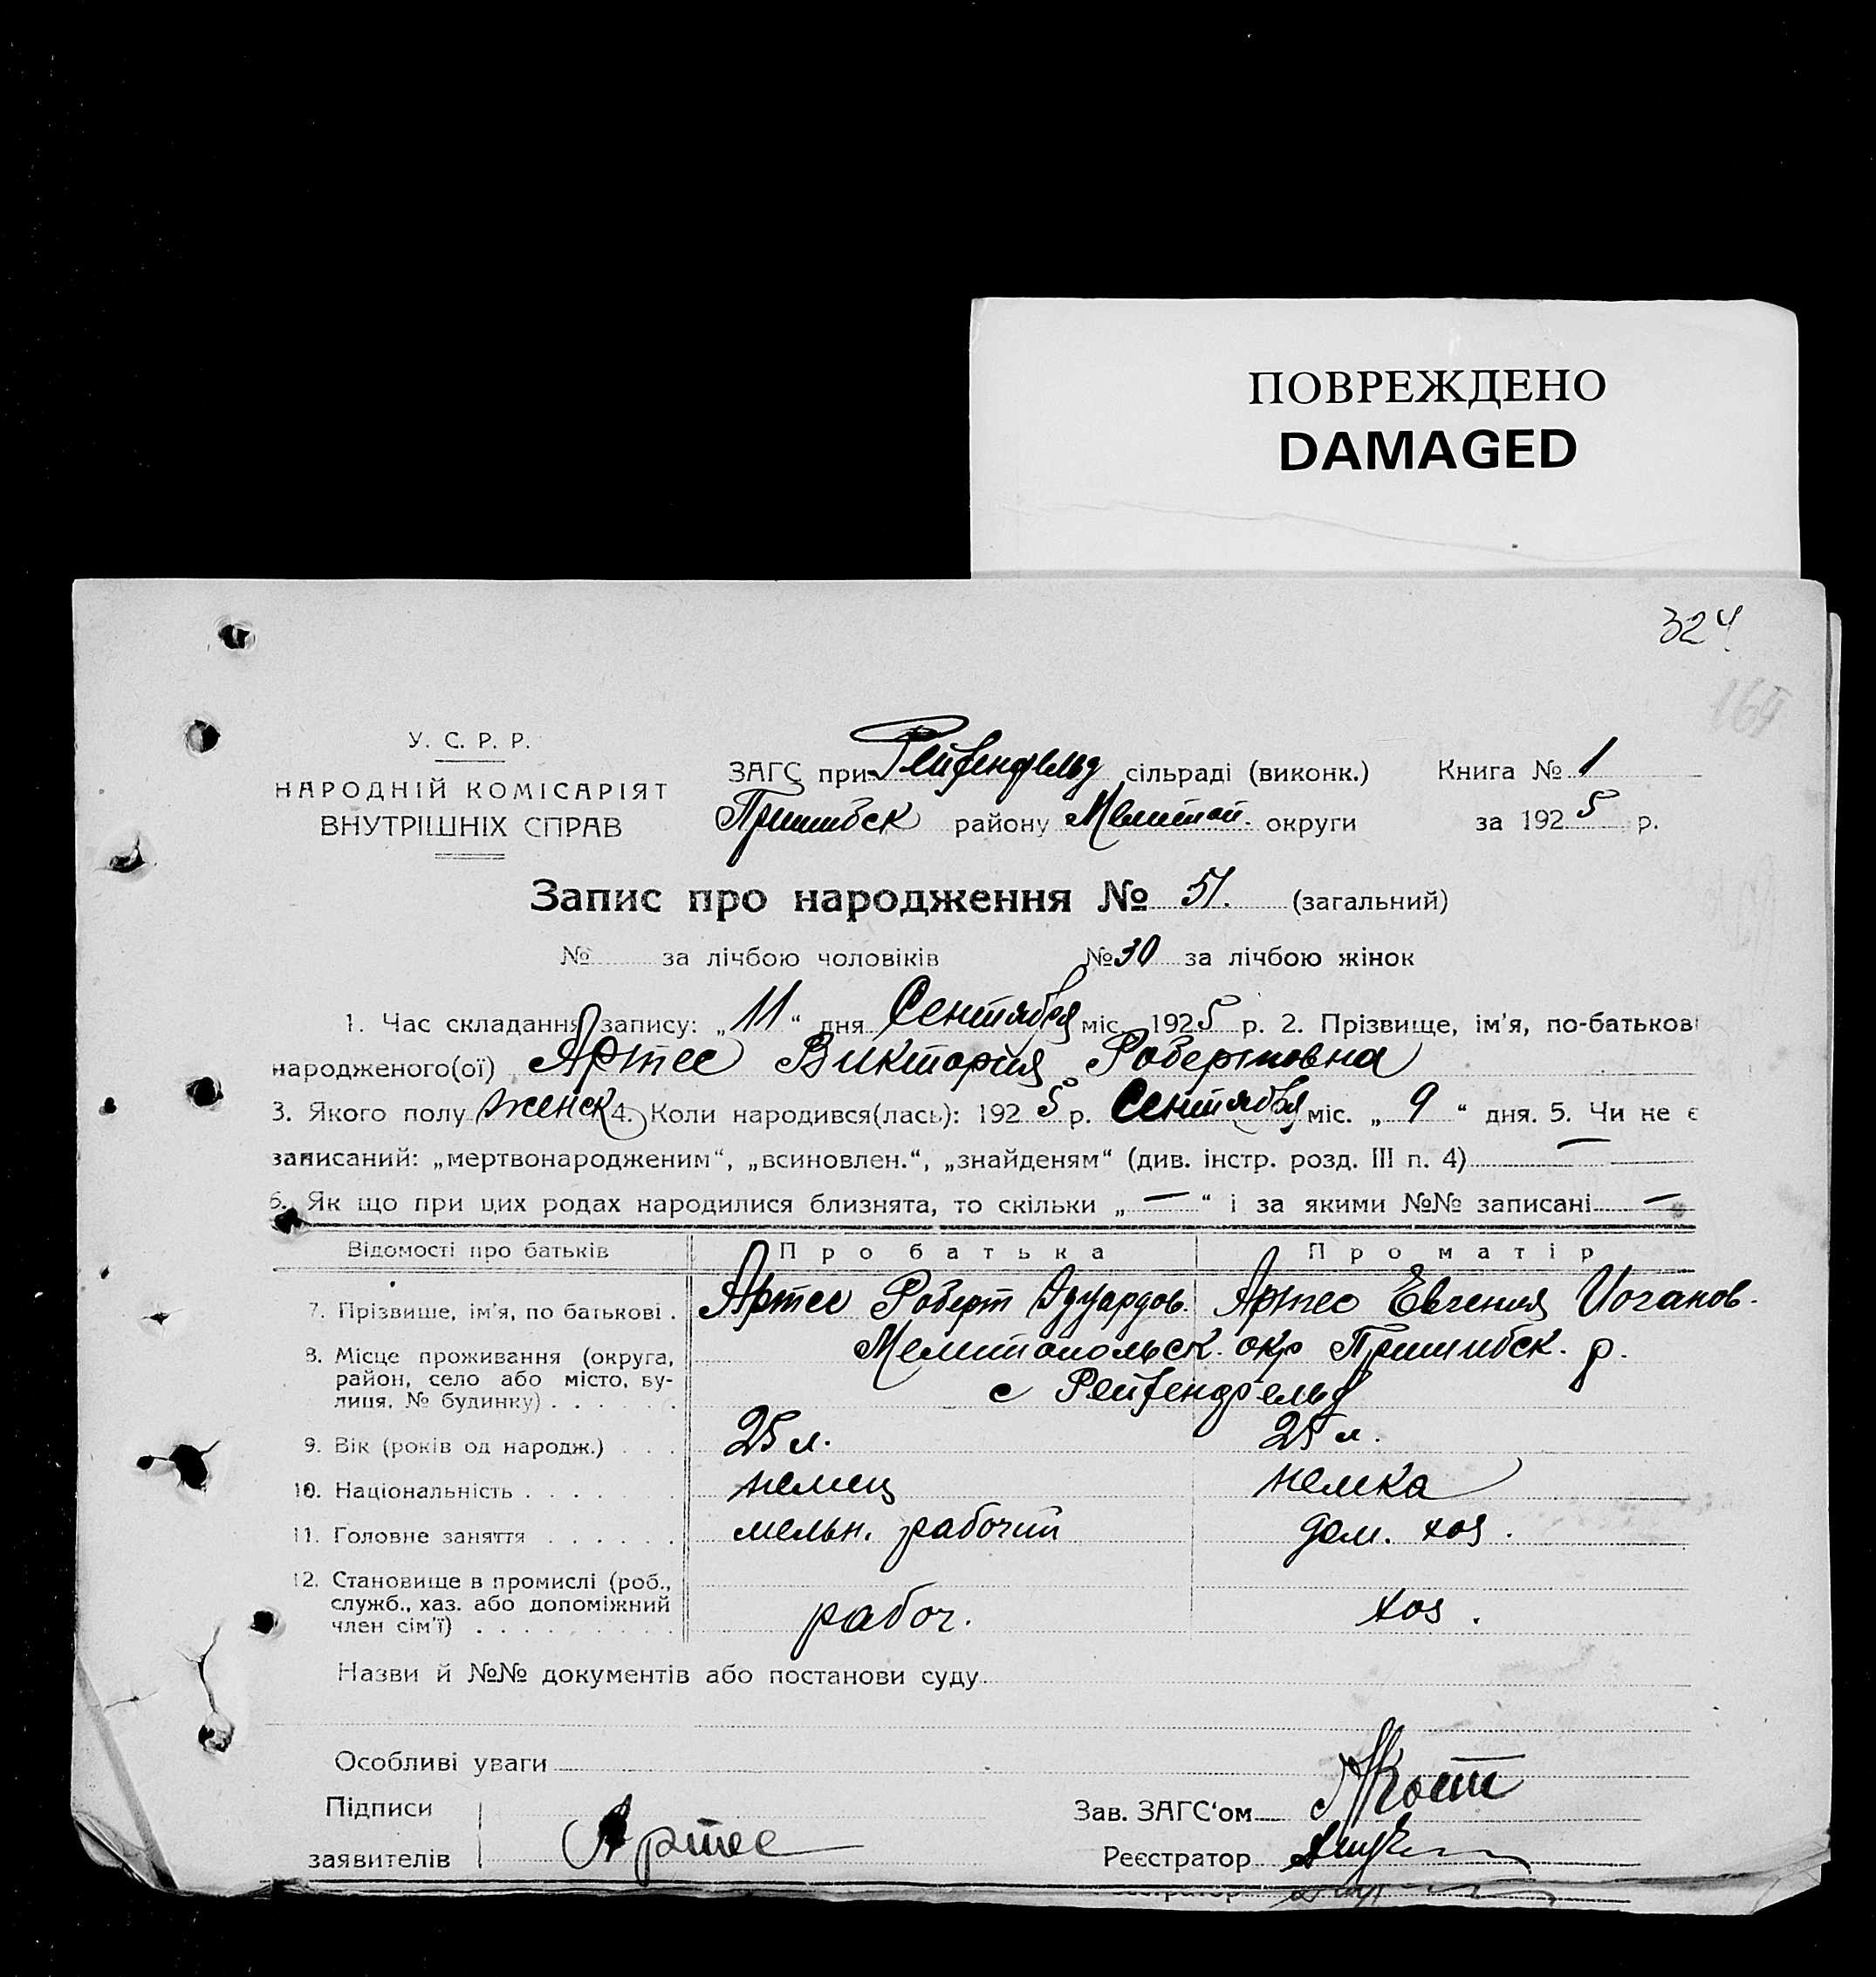 ПОВРЕЖДЕНО
DAMAGED
324
164
У. С. Р. Р.
НАРОДНІЙ КОМІСАРІЯТ
ВНУТРІШНІХ СПРАВ
ЗАГС при Рейхенфельд сільраді (виконк.) Книга № 1
Пришибск району Мелитоп. округи за 1925 р.
Запис про народження № 51. (загальний)
№ за лічбою чоловіків № 30 за лічбою жінок
1. Час складання запису: „11“ дня Сентября міс. 1925 р. 2. Прізвище, ім'я, по-батькові
народженого(ої) Артес Виктория Робертовна
3. Якого полу женск 4. Коли народився(лась): 1925 р. Сентября міс. „9“ дня. 5. Чи не є
записаний: „мертвонародженим“, „всиновлен.“, „знайденям“ (див. інстр. розд. III п. 4) —
6. Як що при цих родах народилися близнята, то скільки „—“ і за якими №№ записані —
Відомості про батьків Про батька Про матір
7. Прізвище, ім'я, по батькові. Артес Роберт Эдуардов. Артес Евгения Иоганов.
8. Місце проживання (округа, Мелитопольск. окр Пришибск. р.
район, село або місто, ву- с Рейхенфельд
лиця, № будинку)
9. Вік (років од народж.) 25 л. 25 л.
10. Національність немец немка
11. Головне заняття мельн. рабочий дом. хоз.
12. Становище в промислі (роб.,
служб., хаз. або допоміжний рабоч. хоз.
член сім'ї)
Назви й №№ документів або постанови суду
Особливі уваги
Підписи Зав. ЗАГС'ом
заявителів Артес Реєстратор